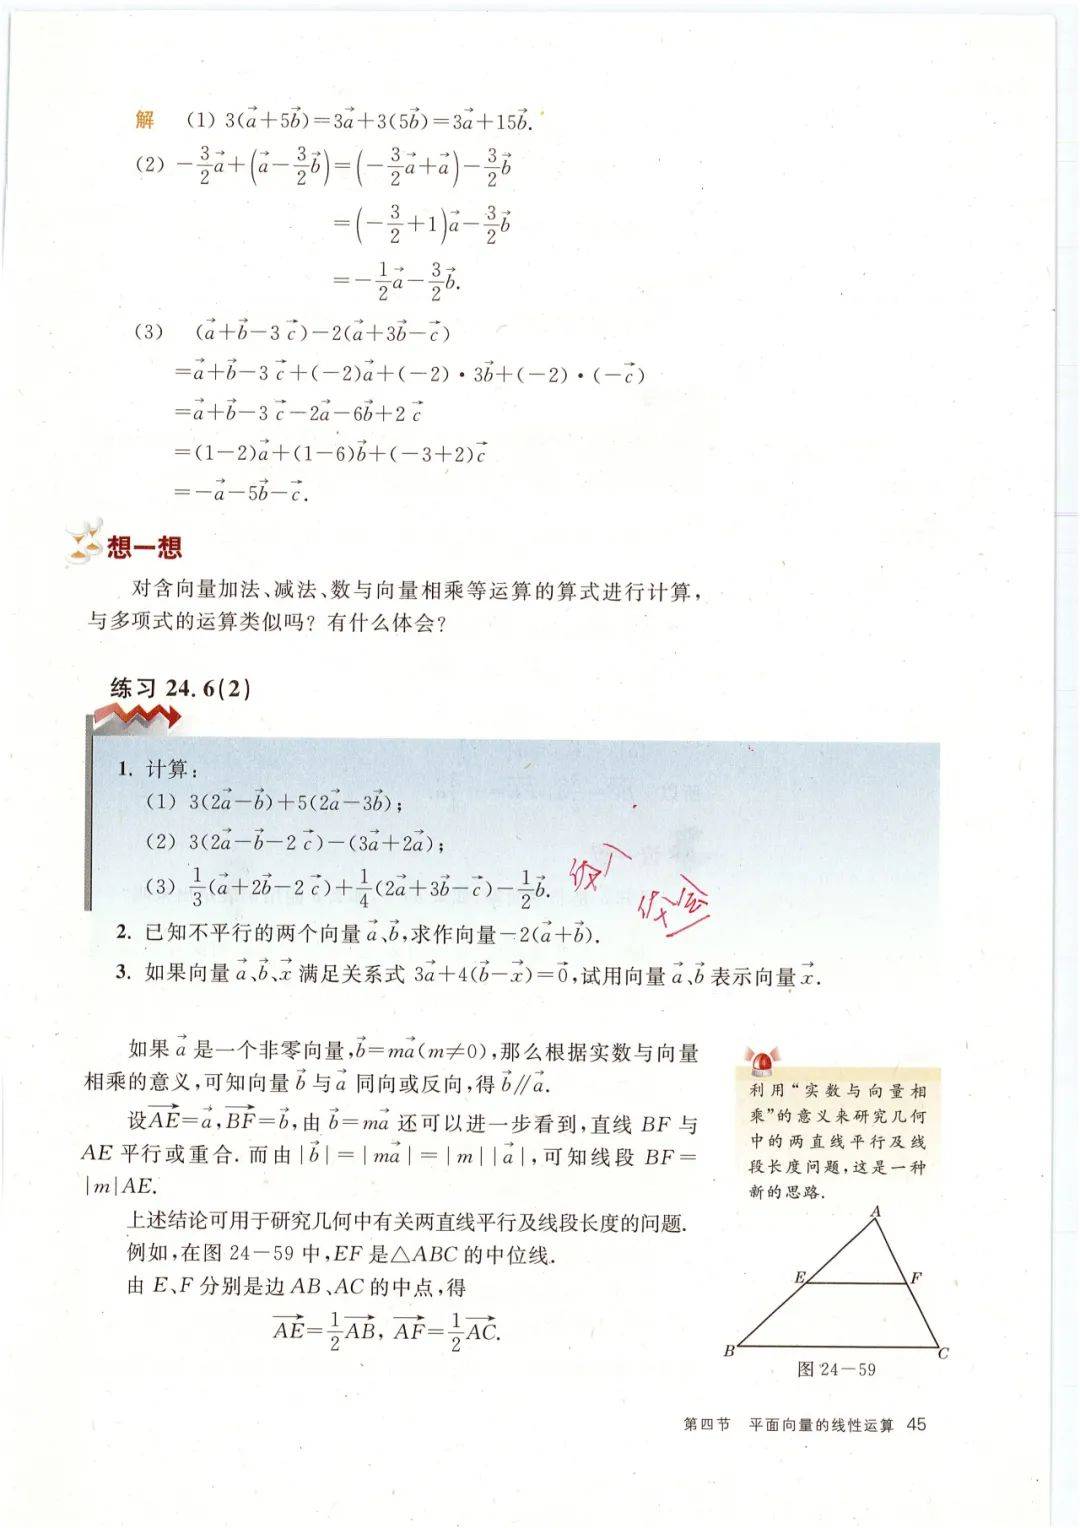 解 (1) 3(a⃗+5b⃗)=3a⃗+3(5b⃗)=3a⃗+15b⃗.
(2) -3/2a⃗+(a⃗-3/2b⃗)=(-3/2a⃗+a⃗)-3/2b⃗
=(-3/2+1)a⃗-3/2b⃗
=-1/2a⃗-3/2b⃗.
(3) (a⃗+b⃗-3c⃗)-2(a⃗+3b⃗-c⃗)
=a⃗+b⃗-3c⃗+(-2)a⃗+(-2)·3b⃗+(-2)·(-c⃗)
=a⃗+b⃗-3c⃗-2a⃗-6b⃗+2c⃗
=(1-2)a⃗+(1-6)b⃗+(-3+2)c⃗
=-a⃗-5b⃗-c⃗.
想一想
对含向量加法、减法、数与向量相乘等运算的算式进行计算,
与多项式的运算类似吗? 有什么体会?
练习 24.6(2)
1. 计算:
(1) 3(2a⃗-b⃗)+5(2a⃗-3b⃗);
(2) 3(2a⃗-b⃗-2c⃗)-(3a⃗+2a⃗);
(3) 1/3(a⃗+2b⃗-2c⃗)+1/4(2a⃗+3b⃗-c⃗)-1/2b⃗.
2. 已知不平行的两个向量a⃗、b⃗,求作向量-2(a⃗+b⃗).
3. 如果向量a⃗、b⃗、x⃗满足关系式 3a⃗+4(b⃗-x⃗)=0⃗,试用向量a⃗、b⃗表示向量x⃗.
如果a⃗是一个非零向量,b⃗=ma⃗(m≠0),那么根据实数与向量
相乘的意义,可知向量b⃗与a⃗同向或反向,得b⃗∥a⃗.
设AE⃗=a⃗,BF⃗=b⃗,由b⃗=ma⃗还可以进一步看到,直线 BF 与
AE 平行或重合. 而由|b⃗|=|ma⃗|=|m||a⃗|,可知线段 BF=
|m|AE.
上述结论可用于研究几何中有关两直线平行及线段长度的问题.
例如,在图 24-59 中,EF 是△ABC 的中位线.
由 E、F 分别是边 AB、AC 的中点,得
AE⃗=1/2AB⃗, AF⃗=1/2AC⃗.
利用“实数与向量相
乘”的意义来研究几何
中的两直线平行及线
段长度问题,这是一种
新的思路.
A
E
F
B
C
图 24-59
第四节 平面向量的线性运算 45